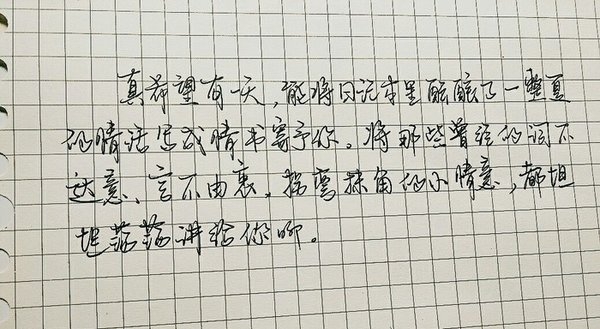 真希望有一天，能将日记本里酝酿了一整夏
的情话写成情书寄予你。将那些曾经的词不
达意、言不由衷、拐弯抹角的小情意，都坦
坦荡荡讲给你聊。